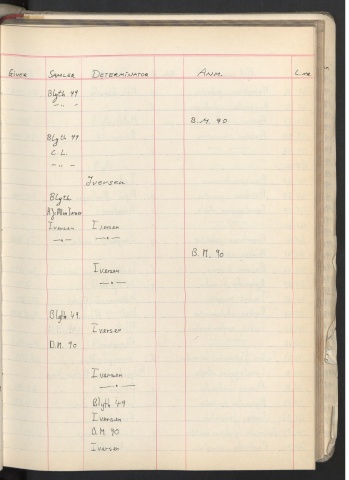 GIVER SAMLER DETERMINATOR ANM. L.nr.
Blyth 49
— " —
B.M. 90
Blyth 49
C. L.
— " —
Iversen
Blyth
Iversen Iversen
— " — — " —
B.M. 90
Iversen
— " —
Blyth 49.
Iversen
D.M. 90
Iversen
— " —
Blyth 49
Iversen
B.M. 90
Iversen